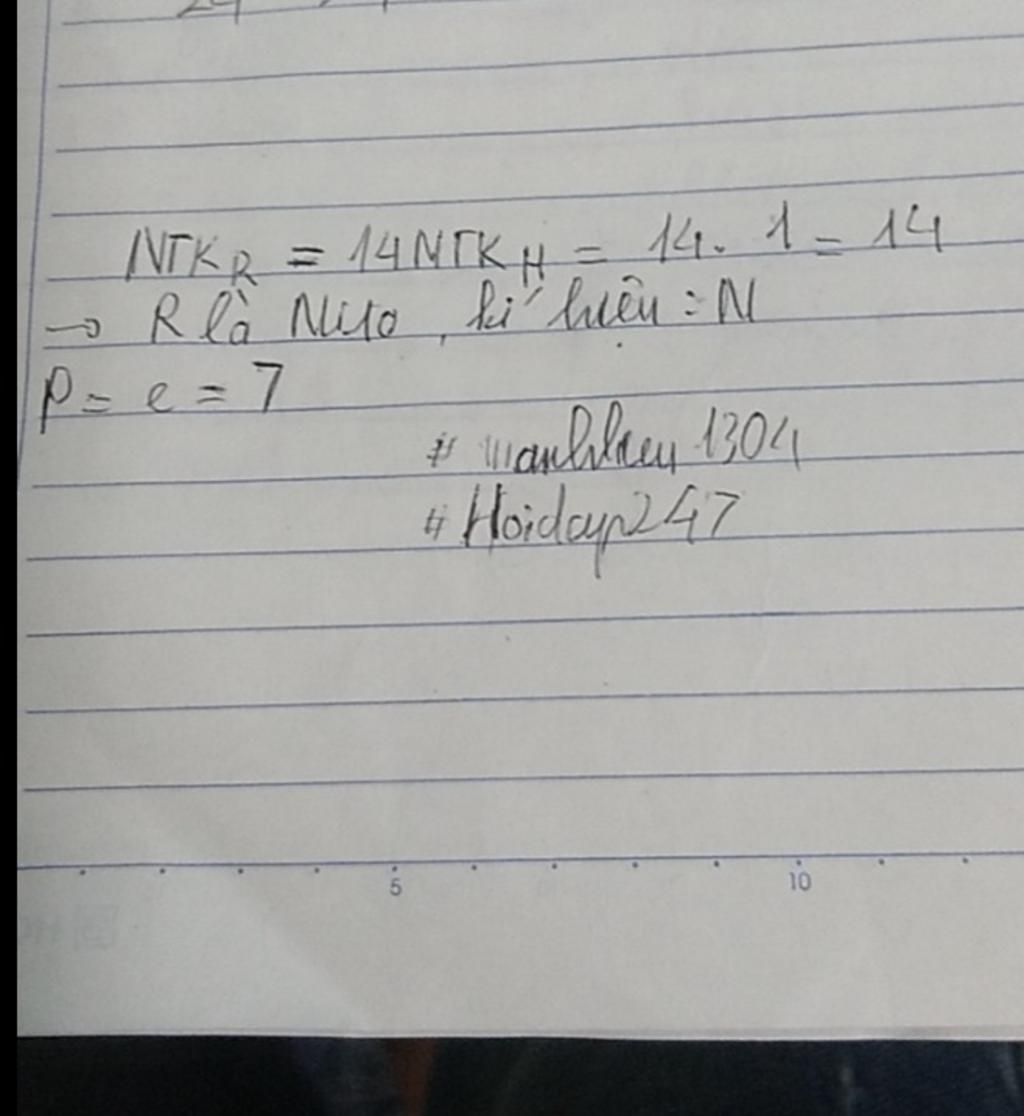 NTK R = 14 NTK H = 14. 1 = 14
→ R là Nitơ, kí hiệu : N
p = e = 7
# 1304
# Hoidap247
5 10